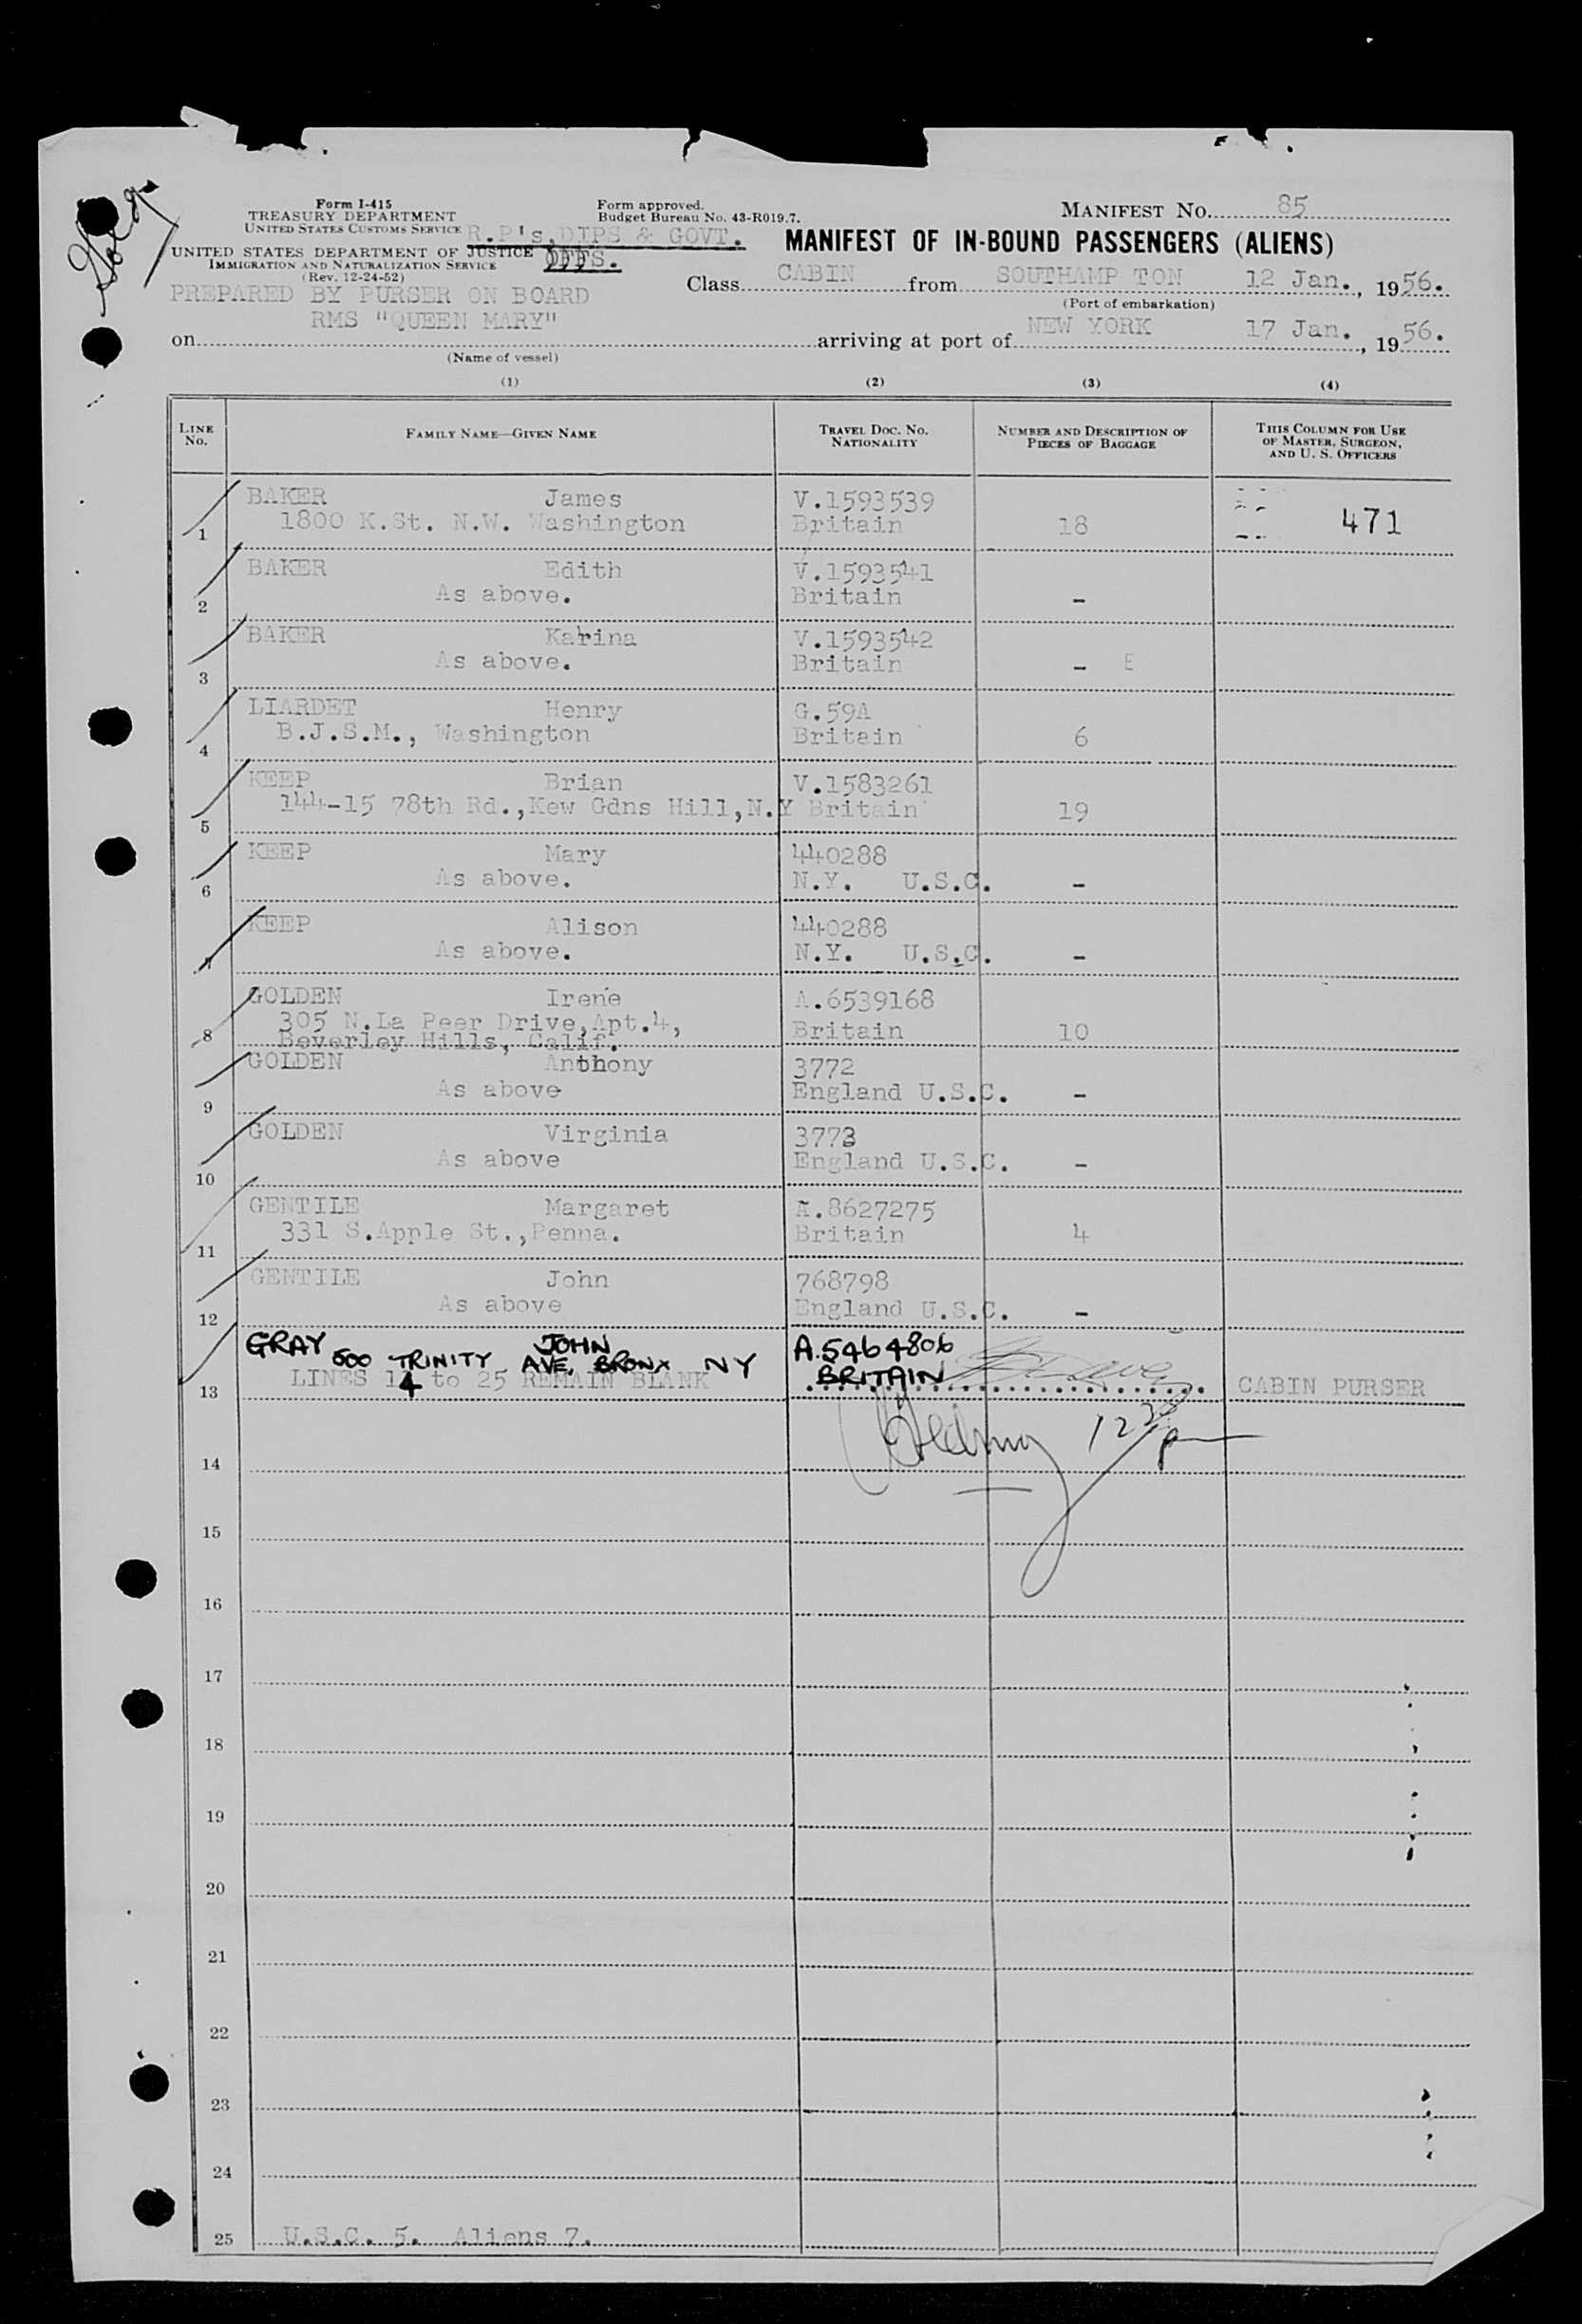 Form I-415
TREASURY DEPARTMENT
UNITED STATES CUSTOMS SERVICE
UNITED STATES DEPARTMENT OF JUSTICE
IMMIGRATION AND NATURALIZATION SERVICE
(Rev. 12-24-52)
Form approved.
Budget Bureau No. 43-R019.7.
R.P's, DIPS & GOVT.
OFFS.
MANIFEST NO. 85
MANIFEST OF IN-BOUND PASSENGERS (ALIENS)
Class CABIN from SOUTHAMP TON 12 Jan., 1956.
(Port of embarkation)
PREPARED BY PURSER ON BOARD
RMS "QUEEN MARY"
on arriving at port of NEW YORK 17 Jan., 1956.
(Name of vessel)
(1) (2) (3) (4)
LINE NO.
FAMILY NAME—GIVEN NAME
TRAVEL DOC. NO. NATIONALITY
NUMBER AND DESCRIPTION OF PIECES OF BAGGAGE
THIS COLUMN FOR USE OF MASTER, SURGEON, AND U. S. OFFICERS
BAKER James V.1593539
1 1800 K.St. N.W. Washington Britain 18 471
BAKER Edith V.1593541
2 As above. Britain -
BAKER Karina V.1593542
3 As above. Britain - E
LIARDET Henry G.59A
4 B.J.S.M., Washington Britain 6
KEEP Brian V.1583261
5 144-15 78th Rd.,Kew Gdns Hill,N.Y Britain 19
KEEP Mary 440288
6 As above. N.Y. U.S.C. -
KEEP Alison 440288
7 As above. N.Y. U.S.C. -
GOLDEN Irene A.6539168
8 305 N.La Peer Drive,Apt.4, Britain 10
Beverley Hills, Calif.
GOLDEN Anthony 3772
9 As above England U.S.C. -
GOLDEN Virginia 3773
10 As above England U.S.C. -
GENTILE Margaret A.8627275
11 331 S.Apple St.,Penna. Britain 4
GENTILE John 768798
12 As above England U.S.C. -
GRAY JOHN A.5464806
500 TRINITY AVE, BRONX NY BRITAIN
13 LINES 14 to 25 REMAIN BLANK CABIN PURSER
14
15
16
17
18
19
20
21
22
23
24
25 U.S.C. 5. Aliens 7.